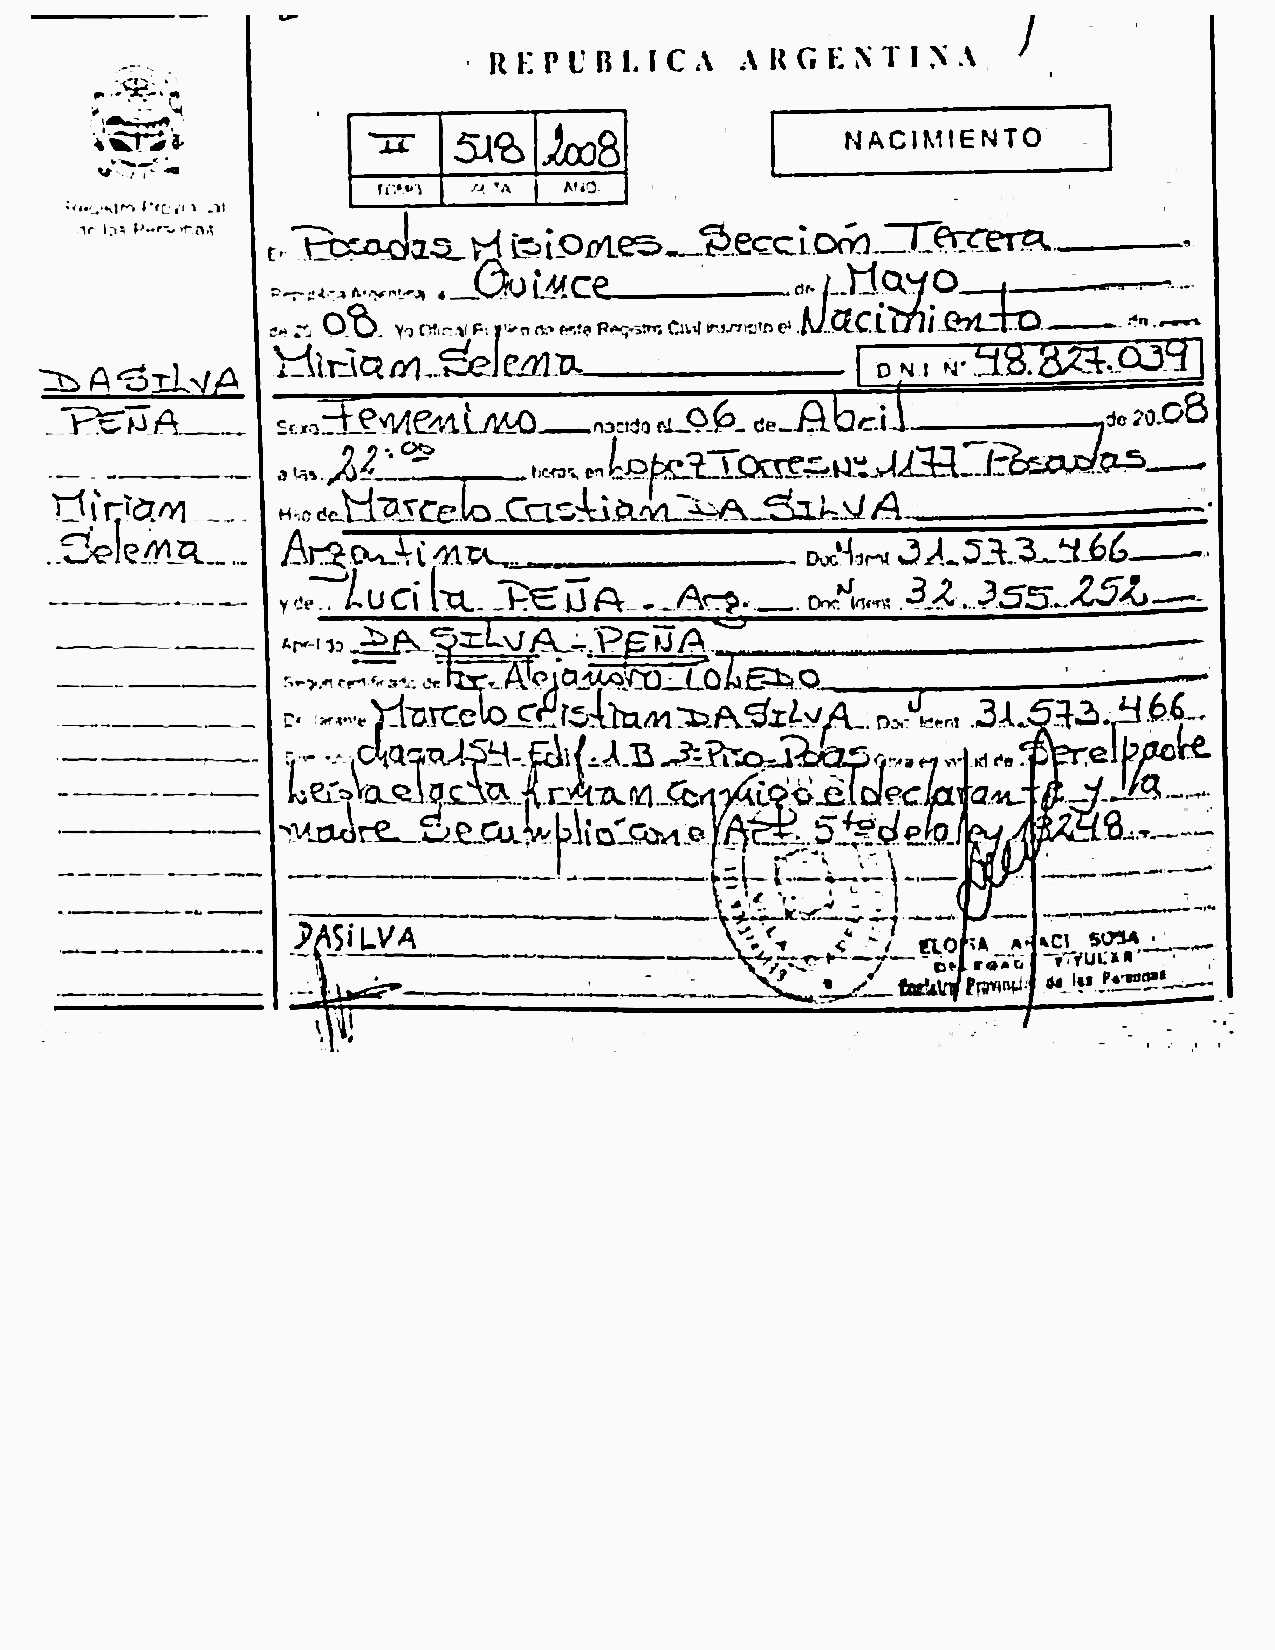 REPUBLICA ARGENTINA
II 518 2008
TOMO ACTA AÑO
NACIMIENTO
Registro Provincial
de las Personas
En Posadas Misiones Sección Tercera
República Argentina, a Quince de Mayo
de 2008 Yo Oficial Público de este Registro Civil inscribo el Nacimiento de
Miriam Selena DNI Nº 48.827.039
DA SILVA
PEÑA
Miriam
Selena
Sexo Femenino nacido el 06 de Abril de 2008
a las 22:00 horas, en Lopez Torres Nº 1177 Posadas
Hijo de Marcelo Cristian DA SILVA
Argentina Doc. Ident 31.573.466
y de Lucila PEÑA - Arg. Doc. Ident 32.355.252
Apellido DA SILVA - PEÑA
Según certificado de Dr. Alejandro TOLEDO
Declarante Marcelo Cristian DA SILVA Doc. Ident 31.573.466
chaga 154 - Edif. 1 B 3º Piso Pdas Ser el padre
Leida el acta firman conmigo el declarante y la
madre Se cumplió con el Art. 5to de la ley 18248
DASiLVA
SOSA
TITULAR
Registro Provincial de las Personas